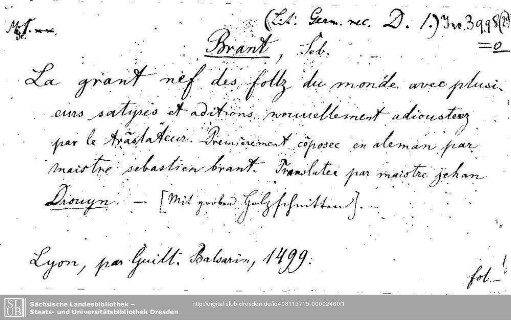 (Lit. Germ. rec. D. 1.)
Brant, Seb.
La grant nef des follz du monde avec plusi-
eurs satyres et aditions nouvellement adioustez
par le trāslateur. Premierement cōposee en aleman par
maistre sebastien brant. Translatee par maistre jehan
Drouyn. — [Mit groben Holzschnitten]. —
Lyon, par Guill. Balsarin, 1499.
fol.
Sächsische Landesbibliothek –
Staats- und Universitätsbibliothek Dresden